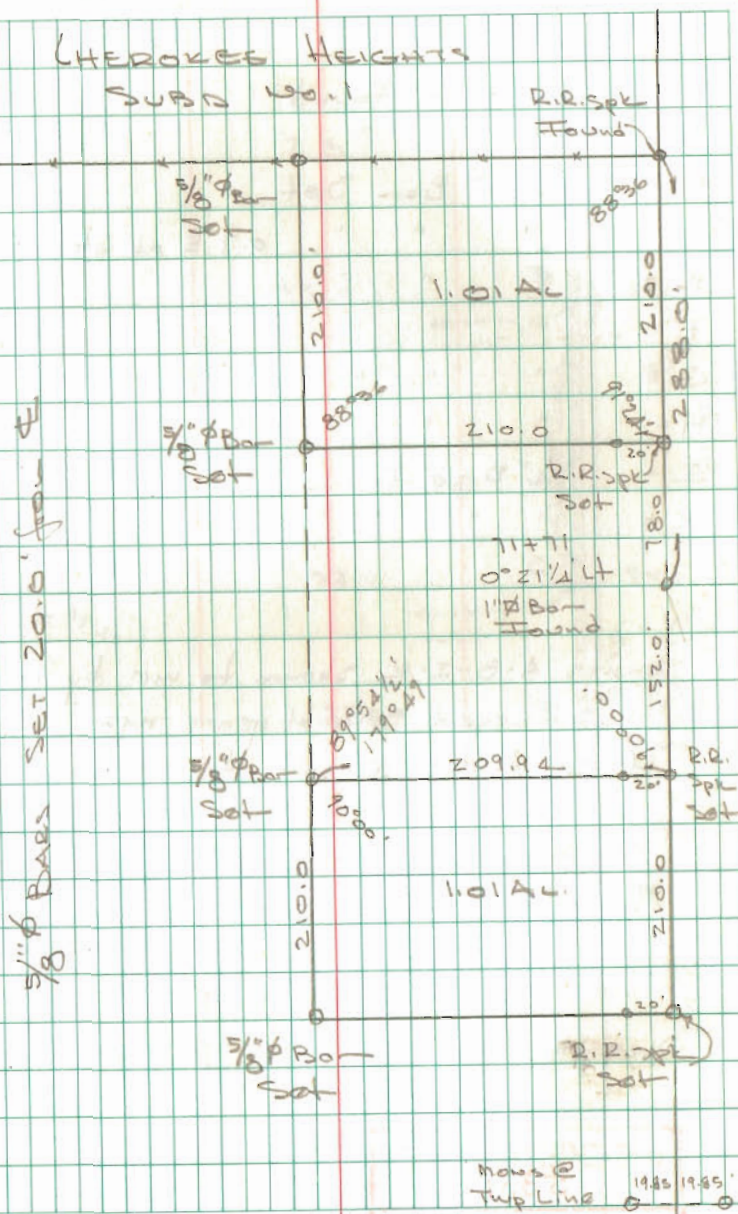 CHEROKEE HEIGHTS
SUBD NO. 1
R.R. Spk
Found
5/8" Ø Bar
Set
88°36
210.0'
1.01 Ac
210.0
288.0'
88°36
5/8" Ø Bar
Set
210.0
91°24'
20'
R.R. Spk
Set
78.0
71+71
0°21 1/4 Lt
1" Ø Bar
Found
152.0'
5/8" Ø BARS SET 20.0' from ℄
89°54 1/2'
179°49
5/8" Ø Bar
Set
209.94
20'
R.R.
Spk
Set
210.0
1.01 Ac.
210.0
20'
5/8" Ø Bar
Set
R.R. Spk
Set
Mons @
Twp Line
19.85 19.85